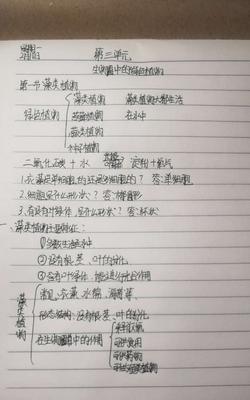 第三单元
生物圈中的绿色植物
第一节 藻类植物
藻类植物 藻类植物大都生活
绿色植物 苔藓植物 在水中
蕨类植物
种子植物
二氧化碳 + 水 淀粉 + 氧气
1、衣藻是单细胞的还是多细胞的? 答:单细胞
2、细胞是什么形状? 答:椭圆形
3、有没有叶绿体,呈什么形状? 答:杯状
一、藻类植物主要特征:
①多数生活在水中
②没有根、茎、叶的分化
③含有叶绿体,能进行光合作用
藻类植物
常见:衣藻、水绵、海带等
形态结构:没有根、茎、叶的分化
在生物圈中的作用
可供食用
可供药用